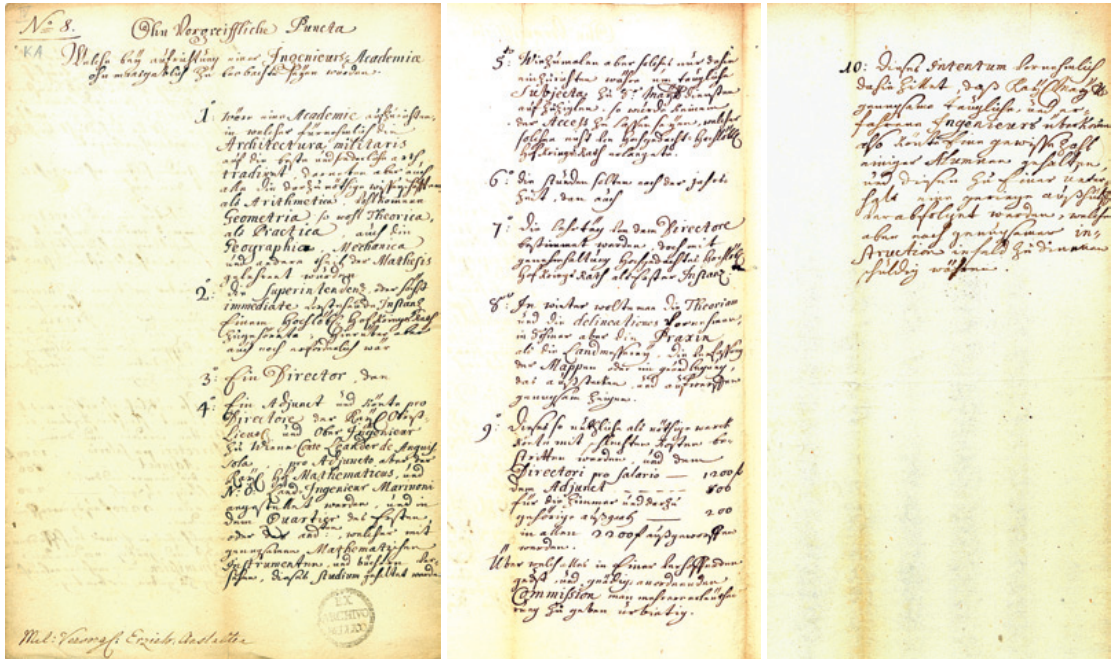 No 8.
Ohn Vorgreiffliche Puncta
KA
Welche bey aufrichtung einer Ingenieurs Academia
ohn maßgeblich zu beobachten seyen würden.
1. Wäre eine Academie aufzurichten,
in welcher fürnehmlich die
Architectura militaris
auf die beste und
tradiret, darneben aber auch
alle die darzu nöthige wissenschafften
als Arithmetica
Geometria so wohl Theorica,
als Practica auch die
Geographia, Mechanica
und andere theil der Mathesis
gelehrnet würden
2. die Superintendenz, oder sonst
immediate vorstehende Instanz
Einem Hochlöbl: Hof Kriegs Rath
auch noch erforderlich wär
3. Ein Director, dan
4. Ein Adjunct und könte pro
Directore, der Kay: Obrist
Lieut: und Ober Ingenieur
zu Wienn Conte Leander de Anguis
sola pro Adjuncto aber der
Kay: Hof Mathematicus, und
N: Ö: Land Ingenieur Marinoni
angestellet werden, und in
dem Quartier des Ersten
oder des and: welcher mit
genugsamen Mathematischen
Instrumenten, und büchern ver-
sehen, dieses Studium gehalten werden
EX
ARCHIVO
Mil: Versorgs: Erzieh: Anstalten
5. aber solches nur dahin
einzurichten wäre um taugliche
Subjecta zu
so würde keinem
der Access zu lassen seyn, welcher
solchen nicht von Hochgedacht: Hochlöbl:
Hof Kriegs Rath erlangete.
6. die stunden solten nach der jahrs
Zeit, dan auch
7. die von dem Directore
bestimmet werden, doch mit
Hochgedachtes Hochlöbl:
Hof Kriegs Rath als Instanz
8. In winter wolte man die Theoriam
und die delineationes vornehmen,
in Sommer aber die Praxin
als die Landmesserey, die
der Mappen oder
das ausstecken und
genugsam zeigen.
9. dieses so nützliche als nöthige werck
könte mit schlechten Kosten be-
stritten werden, und dem
Directori pro salario — 1200 f
dem Adjunct — 800
für die Zimmer und darzu
gehörige — 200
in allen 2200 f ausgeworffen
werden.
Über welch alles in Einer verhoffenden
und gnädig anordnenden
Commission man mehrere erleuthe
rung zu geben urbietig.
10. dieses Intentum vornehmlich
dahin zihlet, daß Kay: May:
genugsame taugliche und er-
fahrene Ingenieurs überkomme
also könte Eine gewisse Zahl
einiger Alumnen gehalten,
und diesen zu Einer unter-
halt eine geringe
verabfolget werden, welche
aber nach genugsamer in-
struction zu dienen
schuldig wären.